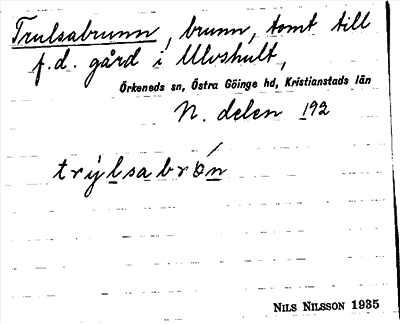 Trulsabrunn, brunn, tomt till
f.d. gård i Ulvshult,
Örkeneds sn, Östra Göinge hd, Kristianstads län
N. delen 192
trýlsabrón
NILS NILSSON 1935